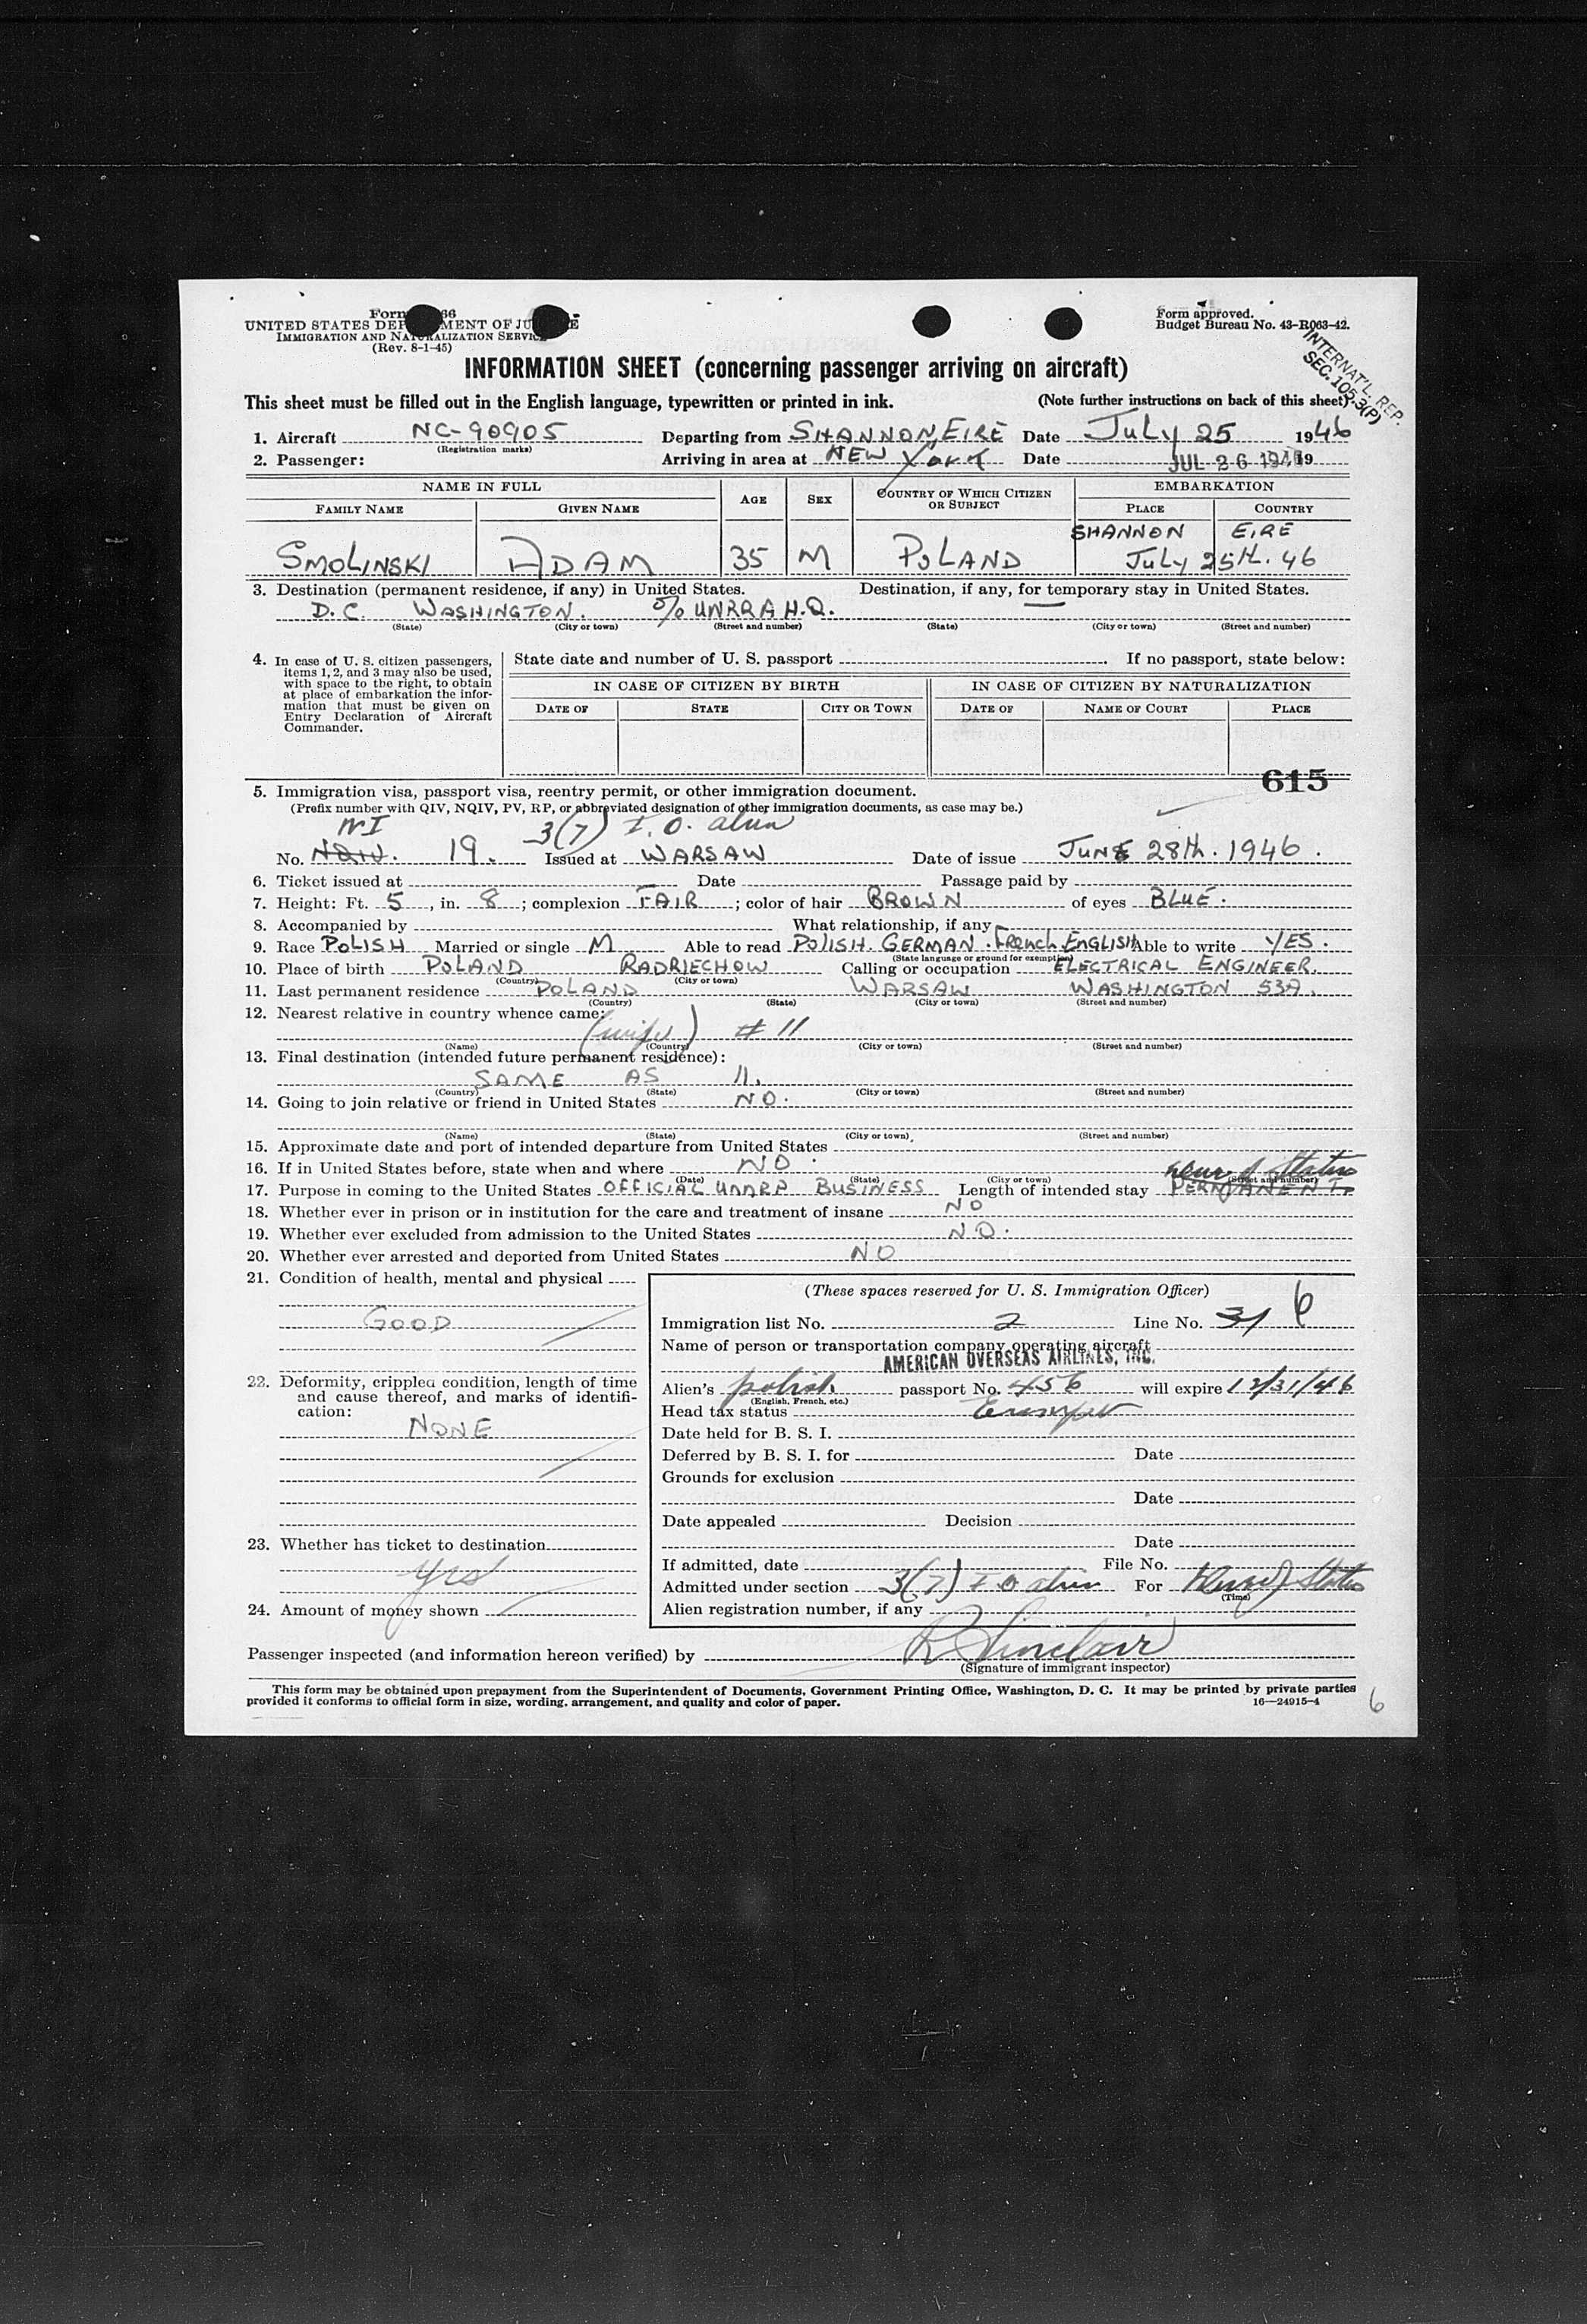 Form 66
UNITED STATES DEPARTMENT OF JUSTICE
IMMIGRATION AND NATURALIZATION SERVICE
(Rev. 8-1-45)
Form approved.
Budget Bureau No. 43-R063-42.
INTERNAT'L. REP.
SEC. 105.3(P)
INFORMATION SHEET (concerning passenger arriving on aircraft)
This sheet must be filled out in the English language, typewritten or printed in ink. (Note further instructions on back of this sheet)
1. Aircraft NC-90905 Departing from SHANNON, EIRE Date July 25 1946
(Registration marks)
2. Passenger: Arriving in area at NEW York Date JUL 26 1946 19
NAME IN FULL AGE SEX COUNTRY OF WHICH CITIZEN OR SUBJECT EMBARKATION
FAMILY NAME GIVEN NAME PLACE COUNTRY
SHANNON EIRE
SMOLINSKI ADAM 35 M POLAND July 25th. 46
3. Destination (permanent residence, if any) in United States. Destination, if any, for temporary stay in United States.
D.C. WASHINGTON. % UNRRA H.Q. —
(State) (City or town) (Street and number) (State) (City or town) (Street and number)
4. In case of U. S. citizen passengers, items 1, 2, and 3 may also be used, with space to the right, to obtain at place of embarkation the information that must be given on Entry Declaration of Aircraft Commander.
State date and number of U. S. passport . If no passport, state below:
IN CASE OF CITIZEN BY BIRTH IN CASE OF CITIZEN BY NATURALIZATION
DATE OF STATE CITY OR TOWN DATE OF NAME OF COURT PLACE
615
5. Immigration visa, passport visa, reentry permit, or other immigration document.
(Prefix number with QIV, NQIV, PV, RP, or abbreviated designation of other immigration documents, as case may be.)
NI 3(7) I.O. alien
No. NQIV. 19. Issued at WARSAW Date of issue JUNE 28th. 1946.
6. Ticket issued at Date Passage paid by
7. Height: Ft. 5, in. 8; complexion FAIR; color of hair BROWN of eyes BLUE.
8. Accompanied by What relationship, if any
9. Race POLISH Married or single M Able to read POLISH. GERMAN. French ENGLISH Able to write YES.
(State language or ground for exemption)
10. Place of birth POLAND RADRIECHOW Calling or occupation ELECTRICAL ENGINEER.
(Country) (City or town)
11. Last permanent residence POLAND WARSAW WASHINGTON 53A.
(Country) (State) (City or town) (Street and number)
12. Nearest relative in country whence came:
(wife) # 11
(Name) (Country) (City or town) (Street and number)
13. Final destination (intended future permanent residence):
SAME AS 11.
(Country) (State) (City or town) (Street and number)
14. Going to join relative or friend in United States NO.
(Name) (State) (City or town) (Street and number)
15. Approximate date and port of intended departure from United States
16. If in United States before, state when and where NO.
(Date) (State) (City or town) (Street and number)
of Status
17. Purpose in coming to the United States OFFICIAL UNRRA BUSINESS Length of intended stay PERMANENT
18. Whether ever in prison or in institution for the care and treatment of insane NO
19. Whether ever excluded from admission to the United States NO.
20. Whether ever arrested and deported from United States NO
21. Condition of health, mental and physical
GOOD
22. Deformity, crippled condition, length of time and cause thereof, and marks of identification:
NONE
23. Whether has ticket to destination
yes
24. Amount of money shown
(These spaces reserved for U. S. Immigration Officer)
Immigration list No. 2 Line No. 31 6
Name of person or transportation company operating aircraft
AMERICAN OVERSEAS AIRLINES, INC.
Alien's polish passport No. 456 will expire 12/31/46
(English, French, etc.)
Head tax status Exempt
Date held for B. S. I.
Deferred by B. S. I. for Date
Grounds for exclusion
Date
Date appealed Decision
Date
If admitted, date File No.
Admitted under section 3(7) I O alien For of Status
(Time)
Alien registration number, if any
Passenger inspected (and information hereon verified) by R Sinclair
(Signature of immigrant inspector)
This form may be obtained upon prepayment from the Superintendent of Documents, Government Printing Office, Washington, D. C. It may be printed by private parties
provided it conforms to official form in size, wording, arrangement, and quality and color of paper. 16—24915-4
6